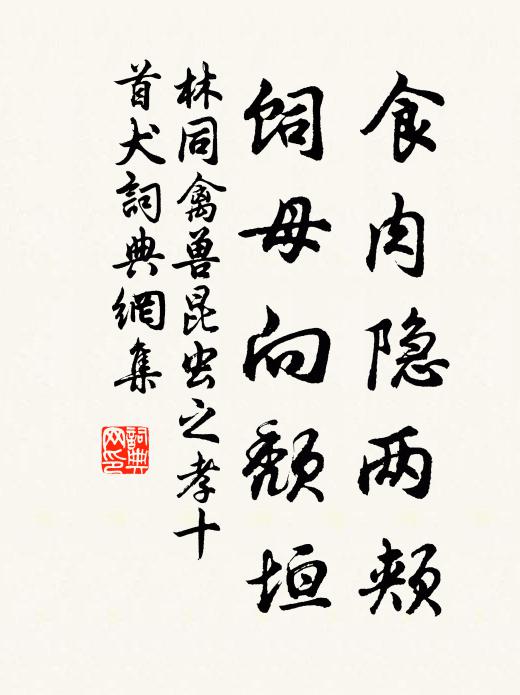 食肉隐两颊
饲母向颓垣
林同禽兽昆虫之孝十
首犬詞典網集
詞典
网印